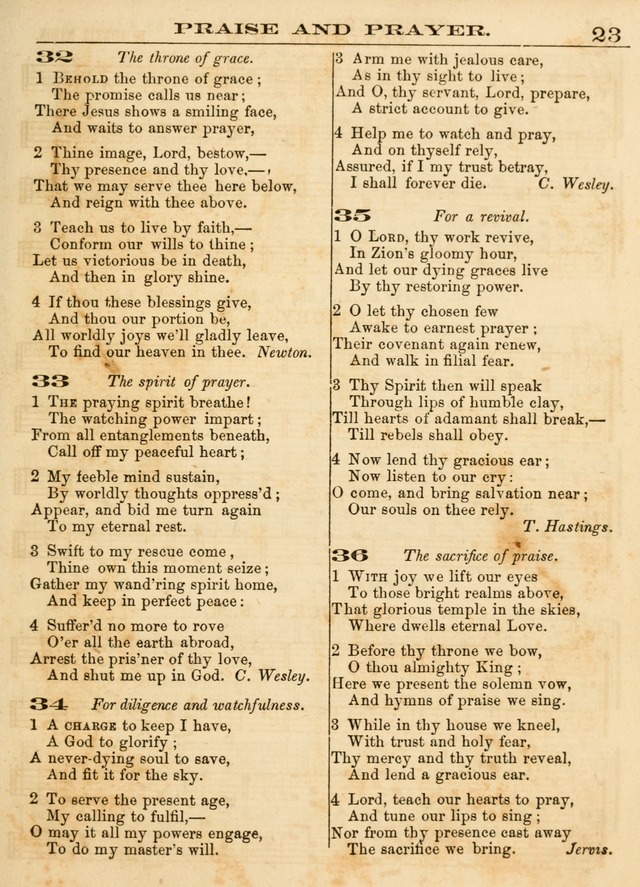 PRAISE AND PRAYER. 23
32 The throne of grace.
1 BEHOLD the throne of grace;
The promise calls us near;
There Jesus shows a smiling face,
And waits to answer prayer,
2 Thine image, Lord, bestow,—
Thy presence and thy love,—
That we may serve thee here below,
And reign with thee above.
3 Teach us to live by faith,—
Conform our wills to thine;
Let us victorious be in death,
And then in glory shine.
4 If thou these blessings give,
And thou our portion be,
All worldly joys we'll gladly leave,
To find our heaven in thee. Newton.
33 The spirit of prayer.
1 THE praying spirit breathe!
The watching power impart;
From all entanglements beneath,
Call off my peaceful heart;
2 My feeble mind sustain,
By worldly thoughts oppress'd;
Appear, and bid me turn again
To my eternal rest.
3 Swift to my rescue come,
Thine own this moment seize;
Gather my wand'ring spirit home,
And keep in perfect peace:
4 Suffer'd no more to rove
O'er all the earth abroad,
Arrest the pris'ner of thy love,
And shut me up in God. C. Wesley.
34 For diligence and watchfulness.
1 A CHARGE to keep I have,
A God to glorify;
A never-dying soul to save,
And fit it for the sky.
2 To serve the present age,
My calling to fulfil,—
O may it all my powers engage,
To do my master's will.
3 Arm me with jealous care,
As in thy sight to live;
And O, thy servant, Lord, prepare,
A strict account to give.
4 Help me to watch and pray,
And on thyself rely,
Assured, if I my trust betray,
I shall forever die. C. Wesley.
35 For a revival.
1 O LORD, thy work revive,
In Zion's gloomy hour,
And let our dying graces live
By thy restoring power.
2 O let thy chosen few
Awake to earnest prayer;
Their covenant again renew,
And walk in filial fear.
3 Thy Spirit then will speak
Through lips of humble clay,
Till hearts of adamant shall break,—
Till rebels shall obey.
4 Now lend thy gracious ear;
Now listen to our cry:
O come, and bring salvation near;
Our souls on thee rely.
T. Hastings.
36 The sacrifice of praise.
1 WITH joy we lift our eyes
To those bright realms above,
That glorious temple in the skies,
Where dwells eternal Love.
2 Before thy throne we bow,
O thou almighty King;
Here we present the solemn vow,
And hymns of praise we sing.
3 While in thy house we kneel,
With trust and holy fear,
Thy mercy and thy truth reveal,
And lend a gracious ear.
4 Lord, teach our hearts to pray,
And tune our lips to sing;
Nor from thy presence cast away
The sacrifice we bring. Jervis.